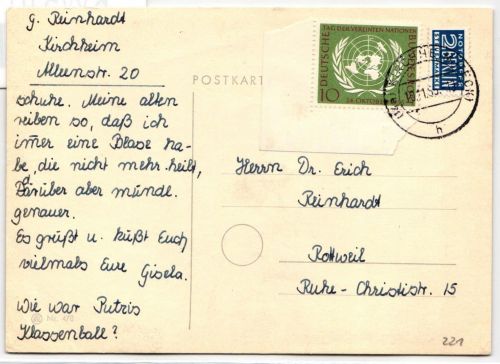 g. Reinhardt
Kirchheim
Alleenstr. 20
schuhe. Meine alten
reiben so, daß ich
immer eine Blase ha-
be, die nicht mehr heilt,
Darüber aber mündl.
genauer.
Es grüßt u. küßt Euch
vielmals Eure Gisela.
Wie war Putzis
Klassenball?
Nr. 478
POSTKART
DEUTSCHE
TAG DER VEREINTEN NATIONEN
BUNDESPOST
10
24. OKTOBER
NOTOPFER
2
BERLIN
STEUERMARKE
(TECK)
h
Herrn Dr. Erich
Reinhardt
Rottweil
Ruhe-Christistr. 15
221